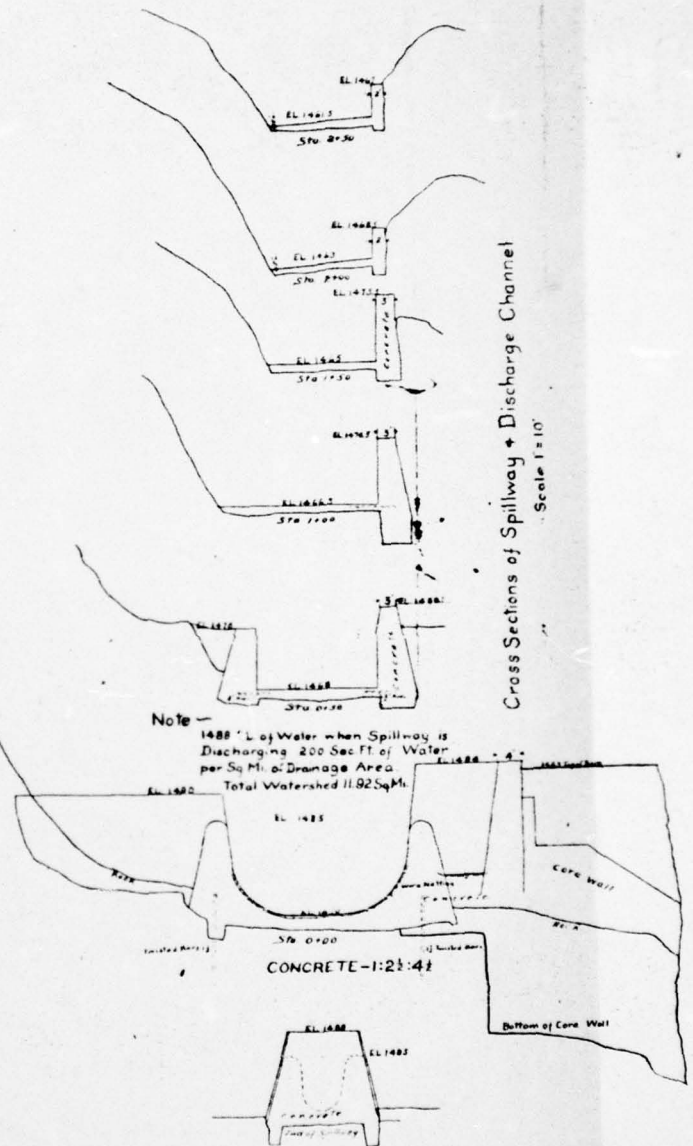 EL 1467
2'
EL 1461.5
Sta. 2+50
EL 1468.5
2'
EL 1463
Sta. 2+00
EL 1473.5
3'
Concrete
EL 1465
Sta 1+50
3'
EL 1466.5
Sta 1+00
EL 1478
3'
Concrete
EL 1468
Sta 0+50
Cross Sections of Spillway & Discharge Channel
Scale 1"=10'
Note ~
1488 'L of Water when Spillway is
Discharging 200 Sec.Ft. of Water
per Sq Mi. of Drainage Area.
Total Watershed 11.92 Sq.Mi.
EL 1480
EL 1485
EL 1488
4'
Rock
Core Wall
Concrete
Rock
Sta 0+00
Twisted Bars
Twisted Bars
CONCRETE-1:2½:4½
Bottom of Core Wall
EL 1488
EL 1485
Concrete
End of Spillway